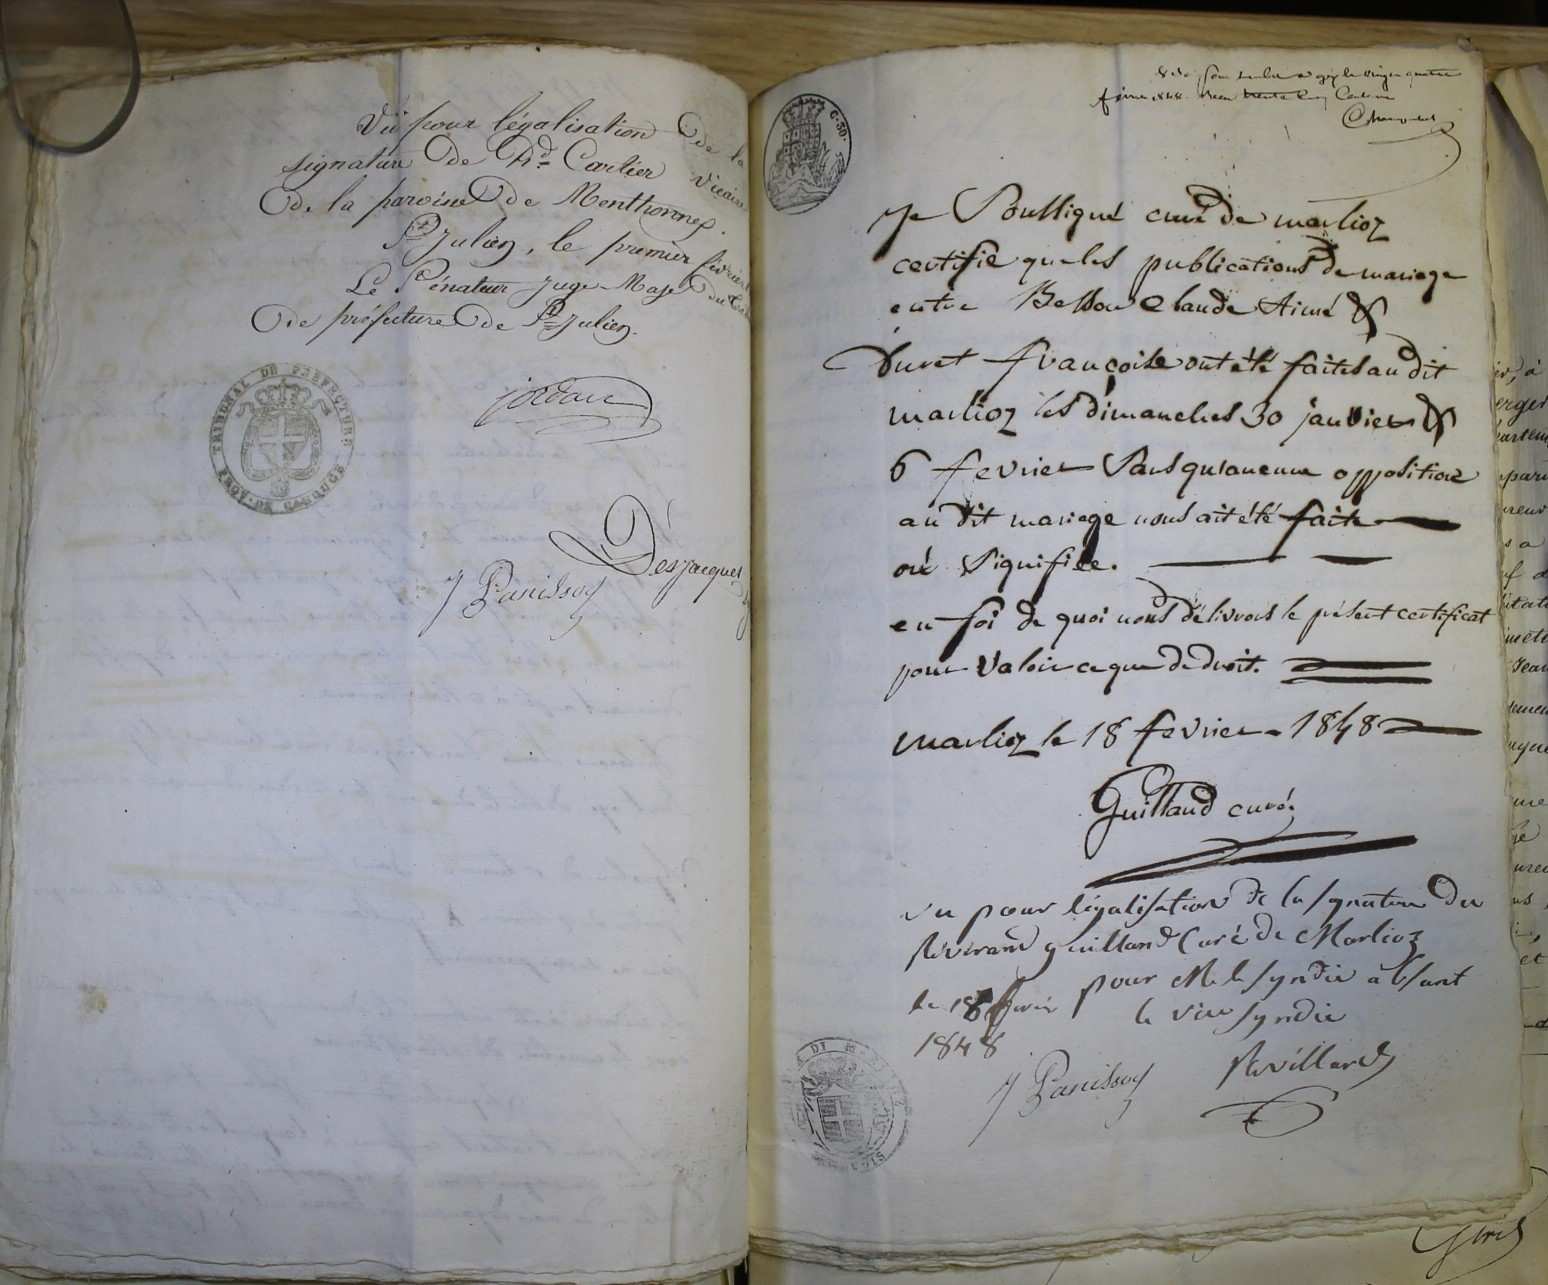 Vû pour légalisation de la
signature de Rd. Cartier vicaire
de la paroisse de Menthonnex.
St Julien, le premier février
Le Sénateur Juge Maje du
de préfecture de St Julien.
TRIBUNAL DE PREFECTURE
PROV. DE CAROUGE
jordan
Desjacques
J Panissod
C. 50.
février 1848
Je Soussigné curé de marlioz
certifie que les publications de mariage
entre Besson Claude Aimé &
Duret françoise ont été faites au dit
marlioz les dimanches 30 janvier &
6 fevrier Sans qu'aucune opposition
au dit mariage nous ait été faite
où Signifiée.
en foi de quoi nous délivrons le présent certificat
pour Valoir ce que de droit.
marlioz le 18 fevrier 1848
Guilland curé
vu pour légalisation de la signature du
Révérand guilland Curé de Marlioz
le 18 fevrier pour Mr le syndic absant
1848 le vice syndic
J Panissod Revillard